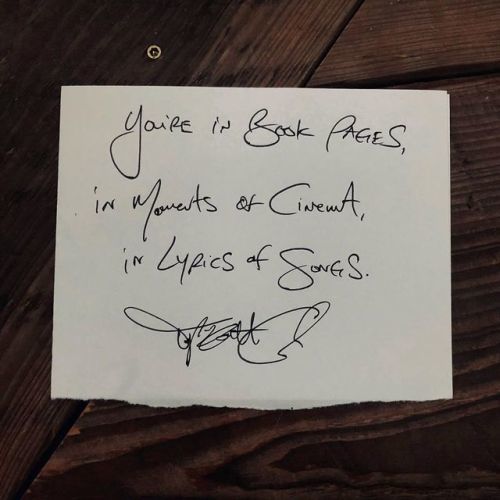 You're in Book Pages,
in Moments of Cinema,
in Lyrics of Songs.